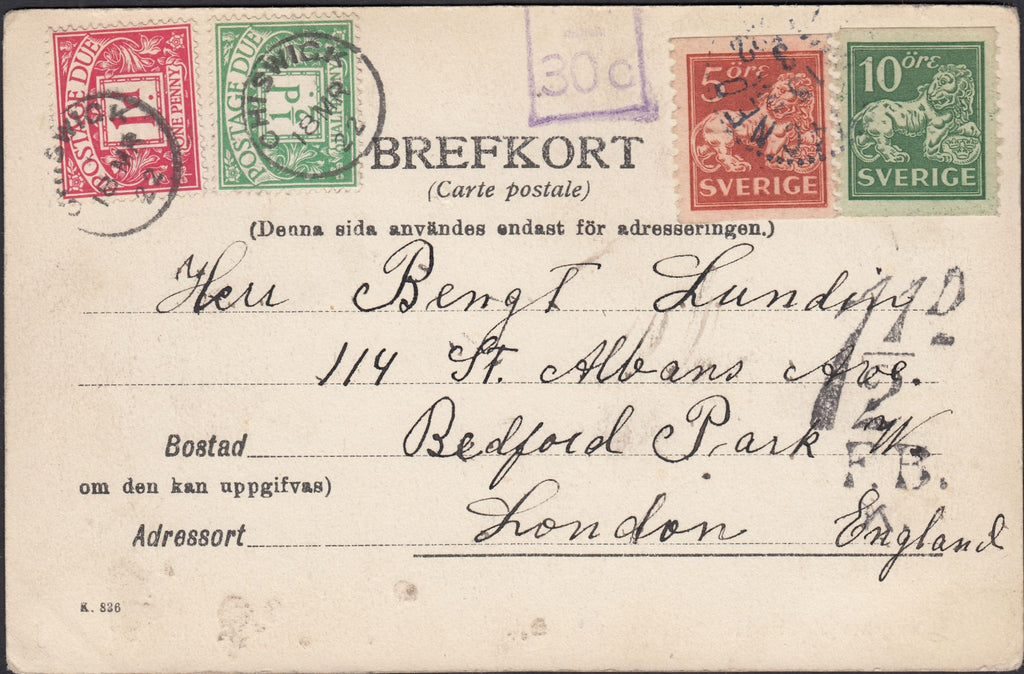 POSTAGE DUE
1D
ONE PENNY
POSTAGE DUE
CHISWICK
18 MR
22
CHISWICK
18 MR
22
30 c
5 öre
SVERIGE
10 öre
SVERIGE
BREFKORT
(Carte postale)
(Denna sida användes endast för adresseringen.)
Herr Bengt Lundin
114 St. Albans Ave.
Bedford Park W.
Bostad
om den kan uppgifvas)
London England
Adressort
1 1/2 D
F.B.
K. 836